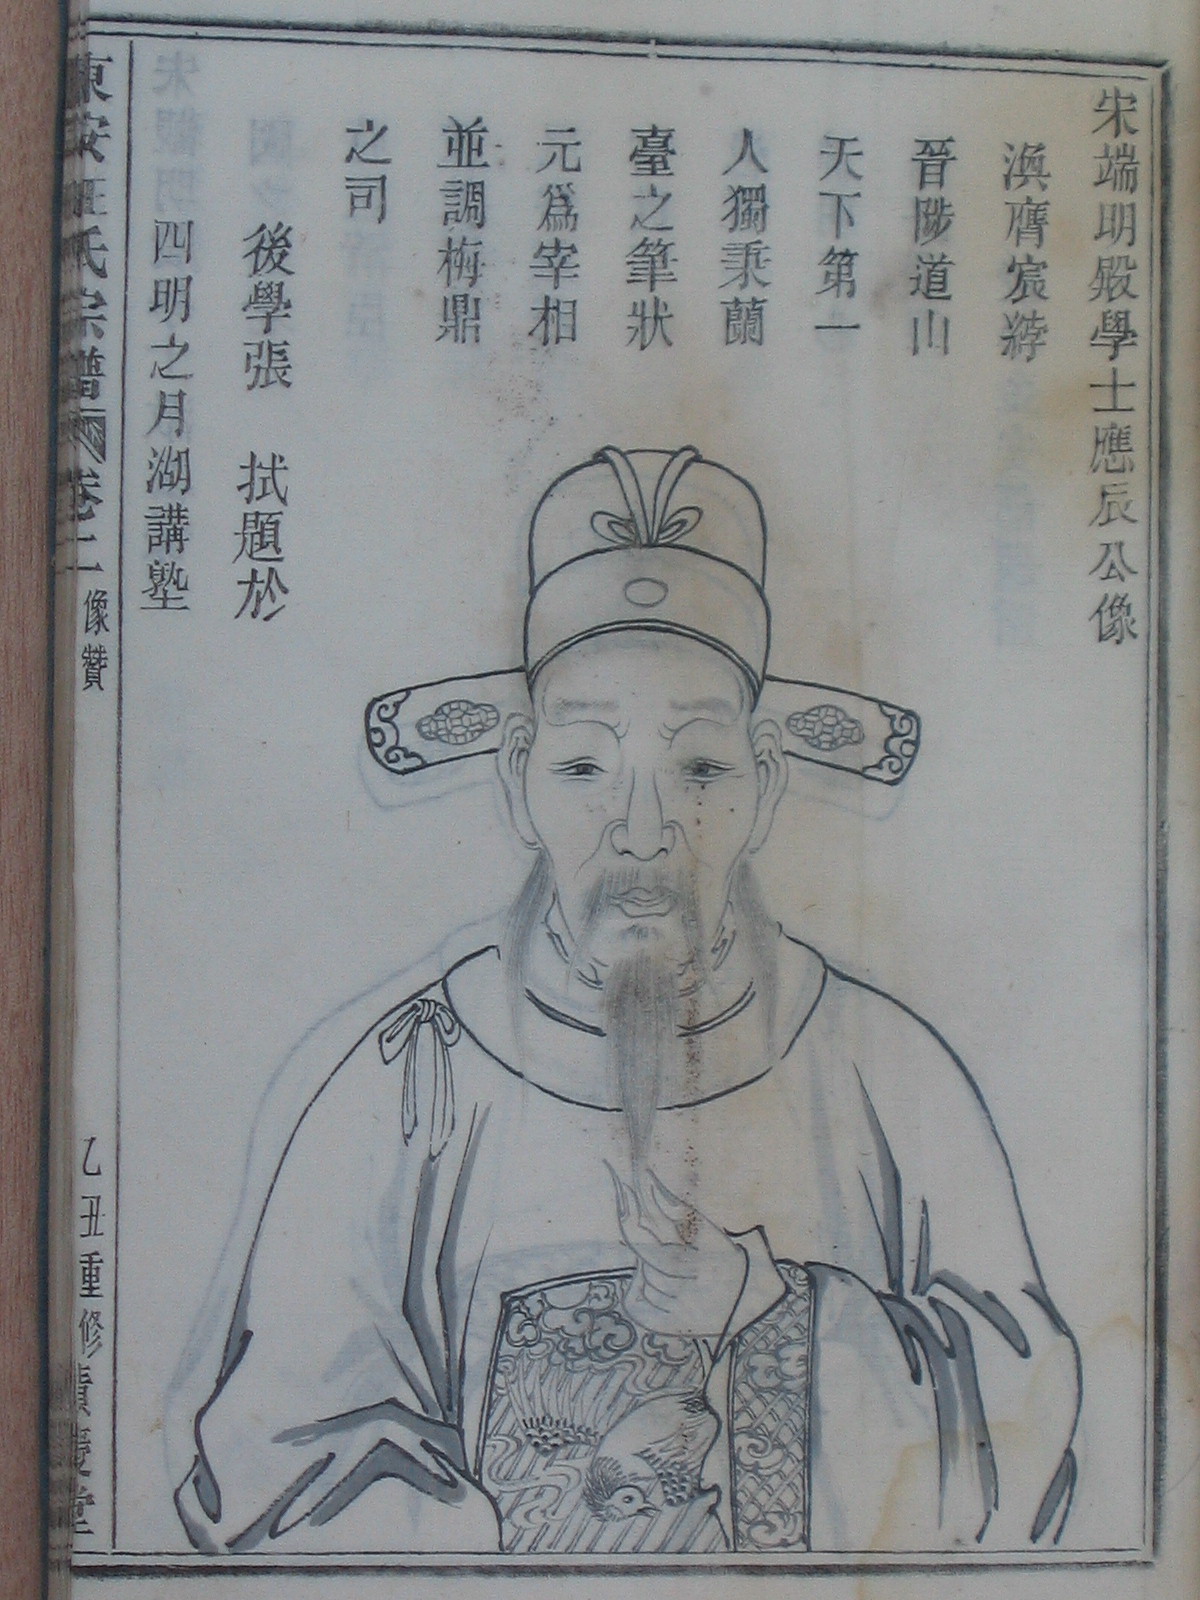 宋端明殿學士應辰公像
渙膺宸
晉陟道山
天下第一
人獨秉蘭
臺之筆狀
元爲宰相
並調梅鼎
之司
後學張 拭題於
四明之月湖講塾
東安汪氏宗譜 卷二 像贊 乙丑重修 慶堂